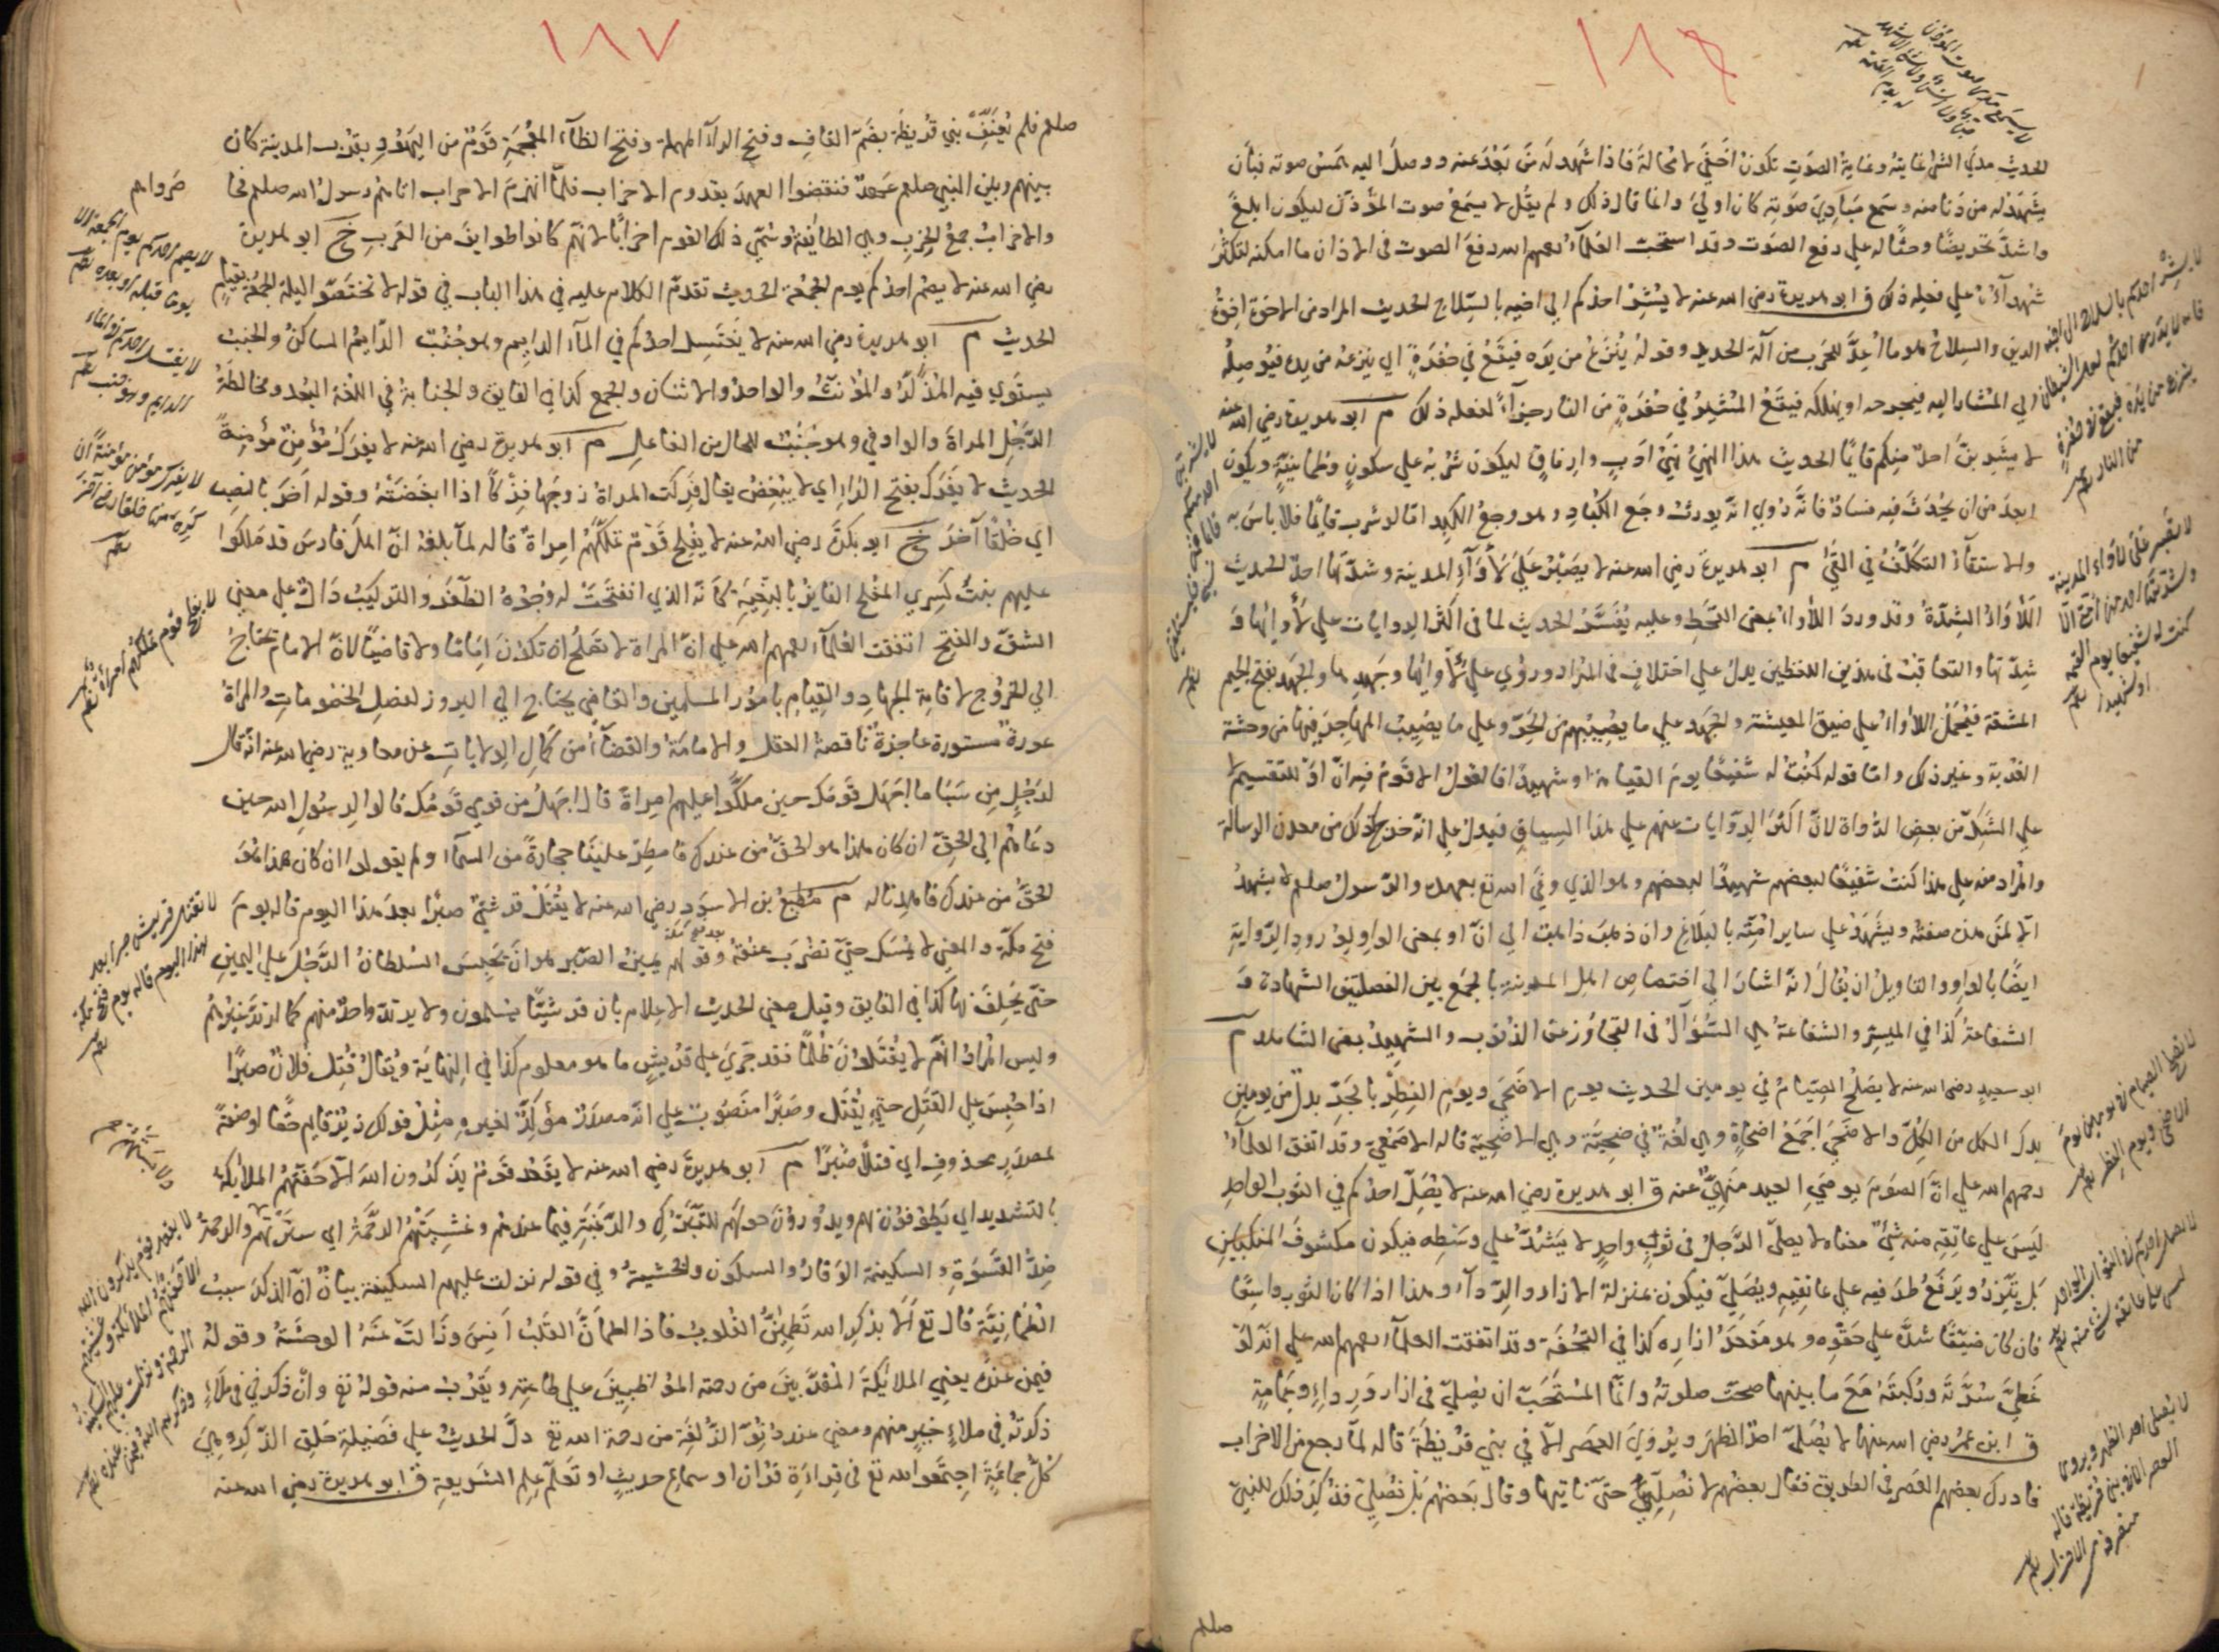 ١٨٦
الحديث مدي الشئ غايته وغاية الصوت تكون اخفي لا محالة فاذا شهد له من بعد عنه ووصل اليه همس صوته فبأن
يشهد له من دنا منه وسمع مبادي صوته كان اولي وانما قال ذلك ولم يقل لا يسمع صوت المؤذن ليكون ابلغ
واشد تحريضا وحثا له علي رفع الصوت وقد استحب العلماء رحمهم الله رفع الصوت في الاذان ما امكنه لتكثر
شهداؤه علي فعله ذلك ق ابو هريرة رضي الله عنه لا يشر احدكم الي اخيه بالسلاح الحديث المراد من الاخوة اخوة
الدين والسلاح هو ما اعد للحرب من آلة الحديد وقوله ينزع من يده فيقع في حفرة اي ينزعه من يده فيوصله
الي المشار اليه فيجرحه او يهلكه فيقع المشير في حفرة من النار جزاء لفعله ذلك م ابو هريرة رضي الله عنه
لا يشربن احد منكم قايما الحديث هذا النهي نهي ادب وارفاق ليكون شربه علي سكون وطمانينة ويكون
ابعد من ان يحدث فيه فساد فانه روي انه يورث وجع الكباد وهو وجع الكبد اما لو شرب قايما فلا باس به
والاستقاء التكلف في القي م ابو هريرة رضي الله عنه لا يصبر علي لأواء المدينة وشدتها احد الحديث
اللأواء الشدة وقد ورد اللأواء بمعني القحط وعليه يفسر الحديث لما في اكثر الروايات علي لأوائها و
شدتها والتعاقب في هذين اللفظين يدل علي اختلاف في المراد وروي علي لأوائها وجهدها والجهد بفتح الجيم
المشقة فيحمل اللأواء علي ضيق المعيشة والجهد علي ما يصيبهم من الحر وعلي ما يصيب المهاجر فيها من وحشة
الغربة وغير ذلك واما قوله كنت له شفيعا يوم القيامة او شهيدا فالقول الاقوم فيه ان او للتقسيم لا
علي الشك من بعض الرواة لان اكثر الروايات عنهم علي هذا السياق فيدل علي انه خرج كذلك من معدن الرسالة
والمراد منه علي هذا كنت شفيعا لبعضهم شهيدا لبعضهم وهو الذي وفي الله تع بعهده والرسول صلعم لا يشهد
الا لمن هذه صفته ويشهد علي ساير امته بالبلاغ وان ذهب ذاهب الي ان او بمعني الواو لورود الرواية
ايضا بالواو والتاويل ان يقال انه اشار الي اختصاص اهل المدينة بالجمع بين الفضلتين الشهادة و
الشفاعة كذا في الميسر والشفاعة هي السؤال في التجاوز عن الذنوب والشهيد بمعني الشاهد م
ابو سعيد رضي الله عنه لا يصلح الصيام في يومين الحديث يوم الاضحي ويوم الفطر بالجر بدل من يومين
بدل الكل من الكل والاضحي اجمع اضحاة وهي لغة في ضحية وهي الاضحية قاله الاصمعي وقد اتفق العلماء
رحمهم الله علي ان الصوم يومي العيد منهي عنه ق ابو هريرة رضي الله عنه لا يصل احدكم في الثوب الواحد
ليس علي عاتقه منه شئ معناه لا يصلي الرجل في ثوب واحد لا يشد علي وسطه فيكون مكشوف المنكبين
بل يتزر ويرفع طرفيه علي عاتقيه ويصلي فيكون بمنزلة الازار والرداء وهذا اذا كان الثوب واسعا
فان كان ضيقا شده علي حقوه وهو معقد ازاره كذا في التحفة وقد اتفقت العلماء رحمهم الله علي انه لو
غطي سرته وركبته مع ما بينهما صحت صلوته وانما المستحب ان يصلي في ازار ورداء وعمامة
ق ابن عمر رضي الله عنهما لا يصلي احد الظهر ويروي العصر الا في بني قريظة قاله لما رجع من الاحزاب
فادرك بعضهم العصر في الطريق فقال بعضهم لا نصلي حتي ناتيها وقال بعضهم بل نصلي فذكر ذلك للنبي
صلعم
لا يشر احدكم بالسلاح الي اخيه
فانه لا يدري احدكم لعل الشيطان
ينزع من يده فيقع في حفرة
من النار
لا يشربن
احد منكم
قايما فمن
نسي فليستقئ
لا يصبر علي لأواء المدينة
وشدتها احد من امتي الا
كنت له شفيعا يوم القيمة
او شهيدا
لا يصلح الصيام في يومين يوم
الاضحي ويوم الفطر
لا يصل احدكم في الثوب الواحد
ليس علي عاتقه شئ منه
لا يصلي احد الظهر ويروي
العصر الا في بني قريظة قاله
منصرفه من الاحزاب
١٨٧
صلعم فلم يعنف بني قريظة بضم القاف وفتح الراء المهملة وفتح الظاء المعجمة قوم من اليهود بقرب المدينة كان
بينهم وبين النبي صلعم عهد فنقضوا العهد بقدوم الاحزاب فلما انهزم الاحراب اتاهم رسول الله صلعم فحا
صرواهم
والاحزاب جمع الحزب وهي الطائفة وسمي ذلك القوم احزابا لانهم كانوا طوايف من العرب خ ابو هريرة
رضي الله عنه لا يصم احدكم يوم الجمعة الحديث تقدم الكلام عليه في هذا الباب في قوله لا تختصوا ليلة الجمعة بقيام
الحديث م ابو هريرة رضي الله عنه لا يغتسل احدكم في الماء الدايم وهو جنب الدايم الساكن والجنب
يستوي فيه المذكر والمؤنث والواحد والاثنان والجمع كذا في الفايق والجنابة في اللغة البعد ومخالطة
الرجل المراة والواو في وهو جنب للحال من الفاعل م ابو هريرة رضي الله عنه لا يفرك مؤمن مؤمنة
الحديث لا يفرك بفتح الراء اي لا يبغض يقال فركت المراة زوجها فركا اذا ابغضته وقوله اخر بالنصب
اي خلقا آخر خ ابو بكرة رضي الله عنه لا يفلح قوم تملكهم امراة قاله لما بلغه ان اهل فارس قد ملكوا
عليهم بنت كسري المفلح الفايز بالبغية كانه الذي انفتحت له وجوه الظفر والتركيب دال علي معني
الشق والفتح اتفقت العلماء رحمهم الله علي ان المراة لا تصلح ان تكون اماما ولا قاضيا لان الامام يحتاج
الي الخروج لاقامة الجهاد والقيام بامور المسلمين والقاضي يحتاج الي البروز لفصل الخصومات والمراة
عورة مستورة عاجزة ناقصة العقل والامامة والقضاء من كمال الولايات عن معاوية رضي الله عنه انه قال
لرجل من سبا ما اجهل قومك حين ملكوا عليهم امراة قال اجهل من قومي قومك قالوا لرسول الله حين
دعاهم الي الحق ان كان هذا هو الحق من عندك فامطر علينا حجارة من السماء ولم يقولوا ان كان هذا هو
الحق من عندك فاهدنا له م مطيع بن الاسود رضي الله عنه لا يقتل قرشي صبرا بعد هذا اليوم قاله يوم
فتح مكة والمعني لا يمسك حتي تضرب عنقه وقولهم يمين الصبر هو ان يحبس السلطان الرجل علي اليمين
حتي يحلف بها كذا في الفايق وقيل معني الحديث الاعلام بان قريشا يسلمون ولا يرتد واحد منهم كما ارتد غيرهم
وليس المراد انهم لا يقتلون ظلما فقد جري علي قريش ما هو معلوم كذا في النهاية ويقال قتل فلان صبرا
اذا حبس علي القتل حتي يقتل وصبرا منصوب علي انه مصدر مؤكد لغيره مثل قولك زيد قايم حقا او صفة
لمصدر محذوف اي قتلا صبرا م ابو هريرة رضي الله عنه لا يقعد قوم يذكرون الله الا حفتهم الملائكة
بالتشديد اي يطوفون بهم ويدورون حولهم للتبرك والرغبة فيما عندهم وغشيتهم الرحمة اي سترتهم والرحمة
ضد القسوة والسكينة الوقار والسكون والخشية وفي قوله نزلت عليهم السكينة بيان ان الذكر سبب
الطمانينة قال تع ألا بذكر الله تطمئن القلوب فاذا اطمان القلب انس وزالت عنه الوحشة وقوله
فيمن عنده يعني الملائكة المقربين من رحمته المواظبين علي طاعته ويقرب منه قوله تع وان ذكرني في ملاء
ذكرته في ملاء خير منهم ومعني عنده قرب الزلفة من رحمة الله تع دل الحديث علي فضيلة حلق الذكر وهي
كل جماعة اجتمعوا لله تع في قراءة قرآن او سماع حديث او تعلم علم الشريعة ق ابو هريرة رضي الله عنه
لا يصم احدكم يوم الجمعة الا
يوما قبله او بعده
لا يغتسل احدكم في الماء
الدايم وهو جنب
لا يفرك مؤمن مؤمنة ان
كره منها خلقا رضي آخر
لا يفلح قوم تملكهم امراة
لا يقتل قريش صبرا بعد
هذا اليوم قاله يوم فتح مكة
لا يقعد قوم يذكرون الله
الا حفتهم الملائكة وغشيتهم
الرحمة ونزلت عليهم السكينة
وذكرهم الله فيمن عنده